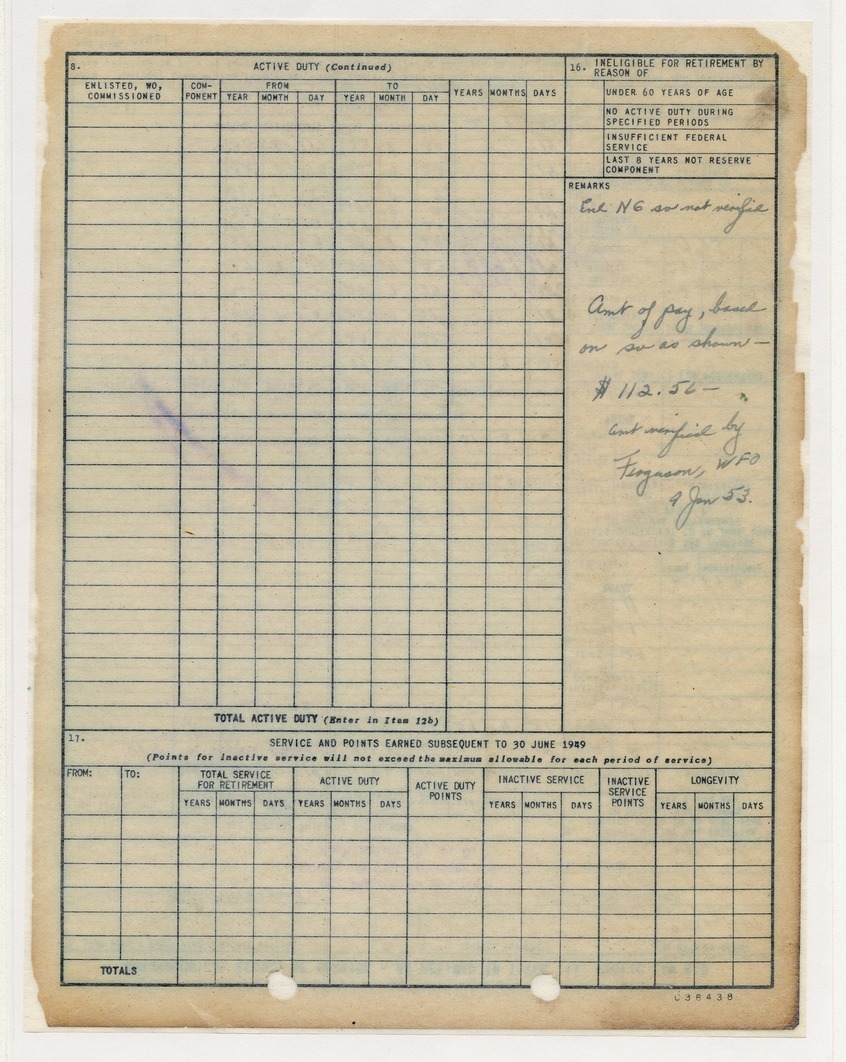 8. ACTIVE DUTY (Continued)
ENLISTED, WO, COMMISSIONED
COM-PONENT
FROM
TO
YEAR MONTH DAY YEAR MONTH DAY
YEARS MONTHS DAYS
16. INELIGIBLE FOR RETIREMENT BY
REASON OF
UNDER 60 YEARS OF AGE
NO ACTIVE DUTY DURING
SPECIFIED PERIODS
INSUFFICIENT FEDERAL
SERVICE
LAST 8 YEARS NOT RESERVE
COMPONENT
REMARKS
Enl NG sv not verified
Amt of pay, based
on sv as shown —
$ 112.56 —
amt verified by
Ferguson, WFO
9 Jan 53.
TOTAL ACTIVE DUTY (Enter in Item 12b)
17.
SERVICE AND POINTS EARNED SUBSEQUENT TO 30 JUNE 1949
(Points for inactive service will not exceed the maximum allowable for each period of service)
FROM: TO:
TOTAL SERVICE
FOR RETIREMENT
ACTIVE DUTY
ACTIVE DUTY
POINTS
INACTIVE SERVICE
INACTIVE
SERVICE
POINTS
LONGEVITY
YEARS MONTHS DAYS YEARS MONTHS DAYS YEARS MONTHS DAYS YEARS MONTHS DAYS
TOTALS
036438